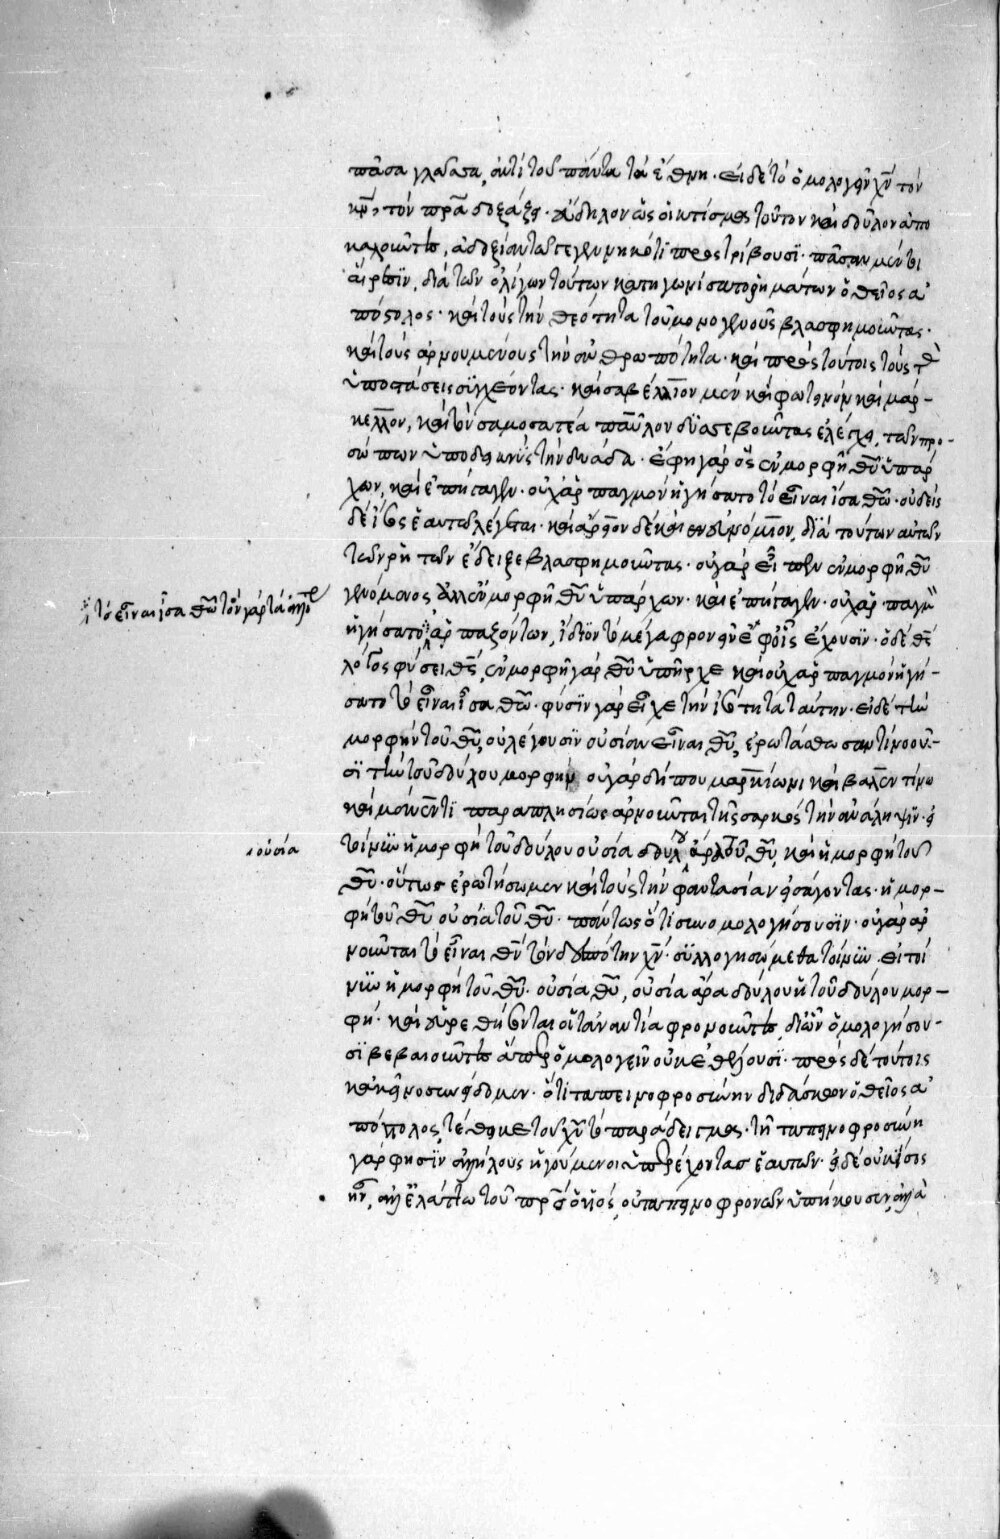 πᾶσα γλῶσσα, ἀντὶ τοῦ πάντα τὰ ἔθνη· εἰ δὲ τὸ ὁμολογεῖν χν τὸν
κν, τὸν πρα δοξάζει· εὔδηλον ὡς οἱ κτίσμα τοῦτον καὶ δοῦλον ἀπο
καλοῦντες, ἀδοξίαν τῶ γεγεννηκότι προστρίβουσι· πᾶσαν μέντοι
αἵρεσιν, διὰ τῶν ὀλίγων τούτων κατηγωνίσατο ῥημάτων ὁ θεῖος ἀ
πόστολος· καὶ τοὺς τὴν θεότητα τοῦ μονογενοῦς βλασφημοῦντας·
καὶ τοὺς ἀρνουμένους τὴν ἀνθρωπότητα· καὶ πρὸς τούτοις τοὺς τὰς
ὑποστάσεις συγχέοντας· καὶ σαβέλλιον μὲν καὶ φωτεινὸν καὶ μάρ-
κελλον, καὶ τὸν σαμοσατέα παῦλον δυσσεβοῦντας ἐλέγχει, τῶν προ-
σώπων ὑποδεικνὺς τὴν δυάδα· ἔφη γὰρ ὃς ἐν μορφῆ θυ ὑπάρ
χων, καὶ ἐπήγαγεν· οὐχ ἁρπαγμὸν ἡγήσατο τὸ εἶναι ἴσα θω· οὐδεὶς
δὲ ἴσος ἑαυτῶ λέγεται· καὶ ἄρειον δὲ καὶ εὐνόμιον, διὰ τούτων αὐτῶν
τῶν ῥητῶν ἔδειξε βλασφημοῦντας· οὐ γὰρ εἶπεν ἐν μορφῆ θυ
γενόμενος ἀλλ' ἐν μορφῆ θυ ὑπάρχων· καὶ ἐπήγαγεν· οὐχ ἁρπαγμὸν
·/· τὸ εἶναι ἴσα θω
ἡγήσατο ·/· ἁρπαζόντων, ἴδιον τὸ μέγα φρονεῖν ἐφ' οἷς ἔχουσιν· ὁ δὲ θς
λόγος φύσει θς, ἐν μορφῆ γὰρ θυ ὑπῆρχε καὶ οὐχ ἁρπαγμὸν ἡγή-
σατο τὸ εἶναι ἴσα θω· φύσιν γὰρ εἶχε τὴν ἰσότητα ταύτην· εἰ δὲ τὴν
μορφὴν τοῦ θυ, οὐ λέγουσιν οὐσίαν εἶναι θυ, ἐρωτάσθωσαν τί νοοῦ-
σι τὴν τοῦ δούλου μορφήν οὐ γὰρ δήπου μαρκίωνι καὶ βαλεντίνω
καὶ μάνεντι παραπλησίως ἀρνοῦνται τῆς σαρκὸς τὴν ἀνάληψιν· εἰ
οὐσία
τοίνυν ἡ μορφὴ τοῦ δούλου οὐσία δούλου ἄρα τοῦ θυ, καὶ ἡ μορφὴ τοῦ
θυ· οὕτως ἐρωτήσωμεν καὶ τοὺς τὴν φαντασίαν εἰσάγοντας· ἡ μορ-
φὴ τοῦ θυ οὐσία τοῦ θυ· πάντως ὅτι συνομολογήσουσιν· οὐ γὰρ ἀρ
νοῦνται τὸ εἶναι θν τὸν δεσπότην χν· συλλογησώμεθα τοίνυν εἰ τοί
νυν ἡ μορφὴ τοῦ θυ· οὐσία θυ, οὐσία ἄρα δούλου ἡ τοῦ δούλου μορ-
φή· καὶ εὑρεθήσονται οἱ τἀναντία φρονοῦντες, δι' ὧν ὁμολογήσου-
σι βεβαιοῦντες ἅπερ ὁμολογεῖν οὐκ ἐθέλουσι· πρὸς δὲ τούτοις
κἀκεῖνο συνίδωμεν· ὅτι ταπεινοφροσύνην διδάσκων ὁ θεῖος ἀ
πόστολος, τέθεικε τοῦ χυ τὸ παράδειγμα· τῆ ταπεινοφροσύνη
γάρ φησιν ἀλλήλους ἡγούμενοι ὑπερέχοντας ἑαυτῶν· εἰ δὲ οὐκ ἴσος
ἦν, ἀλλ' ἐλάττων τοῦ πρς ὁ υἱός, οὐ ταπεινοφρονῶν ὑπήκουσεν, ἀλλὰ